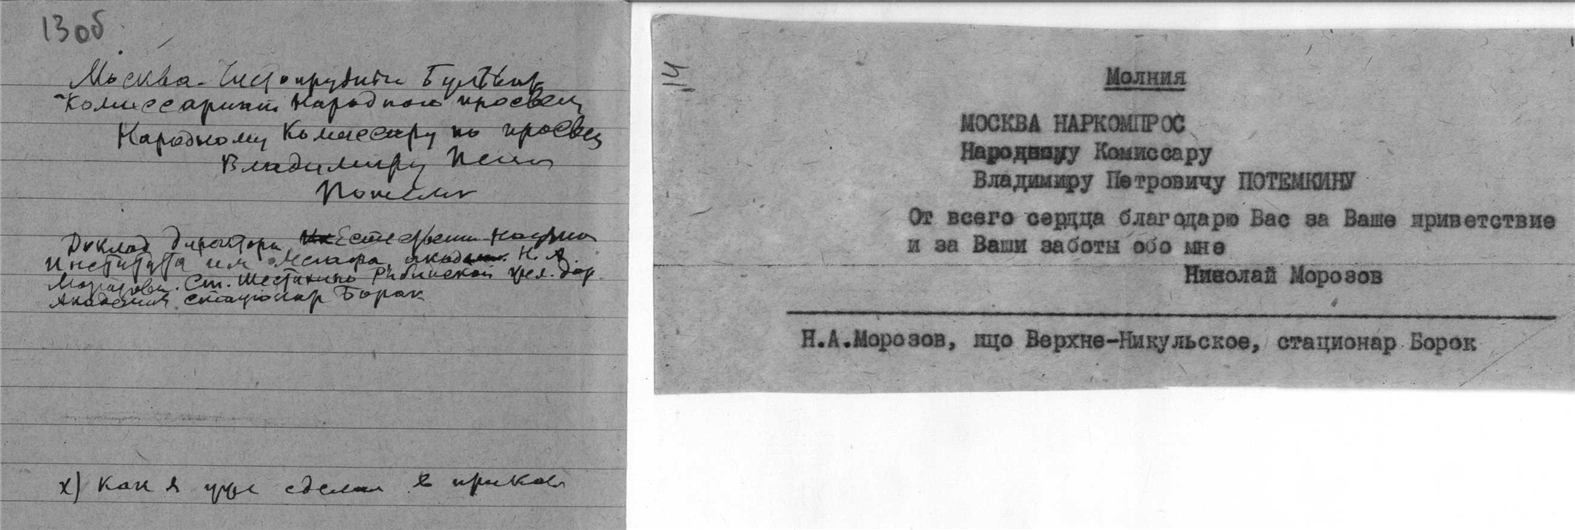 13об
Москва - Чистопрудный Бульвар
Комиссариат Народного просвещ
Народному Комиссару по просвещ
Владимиру
Доклад директора Естественно-Научно
Института им Лесгафта, акад. Н. А.
Морозова. Ст. Шестихино Рыбинской жел. дор.
стационар Борок
х) Как я уже сделал в
14
Молния
МОСКВА НАРКОМПРОС
Народному Комиссару
Владимиру Петровичу ПОТЕМКИНУ
От всего сердца благодарю Вас за Ваше приветствие
и за Ваши заботы обо мне
Николай Морозов
Н.А.Морозов, пцо Верхне-Никульское, стационар Борок